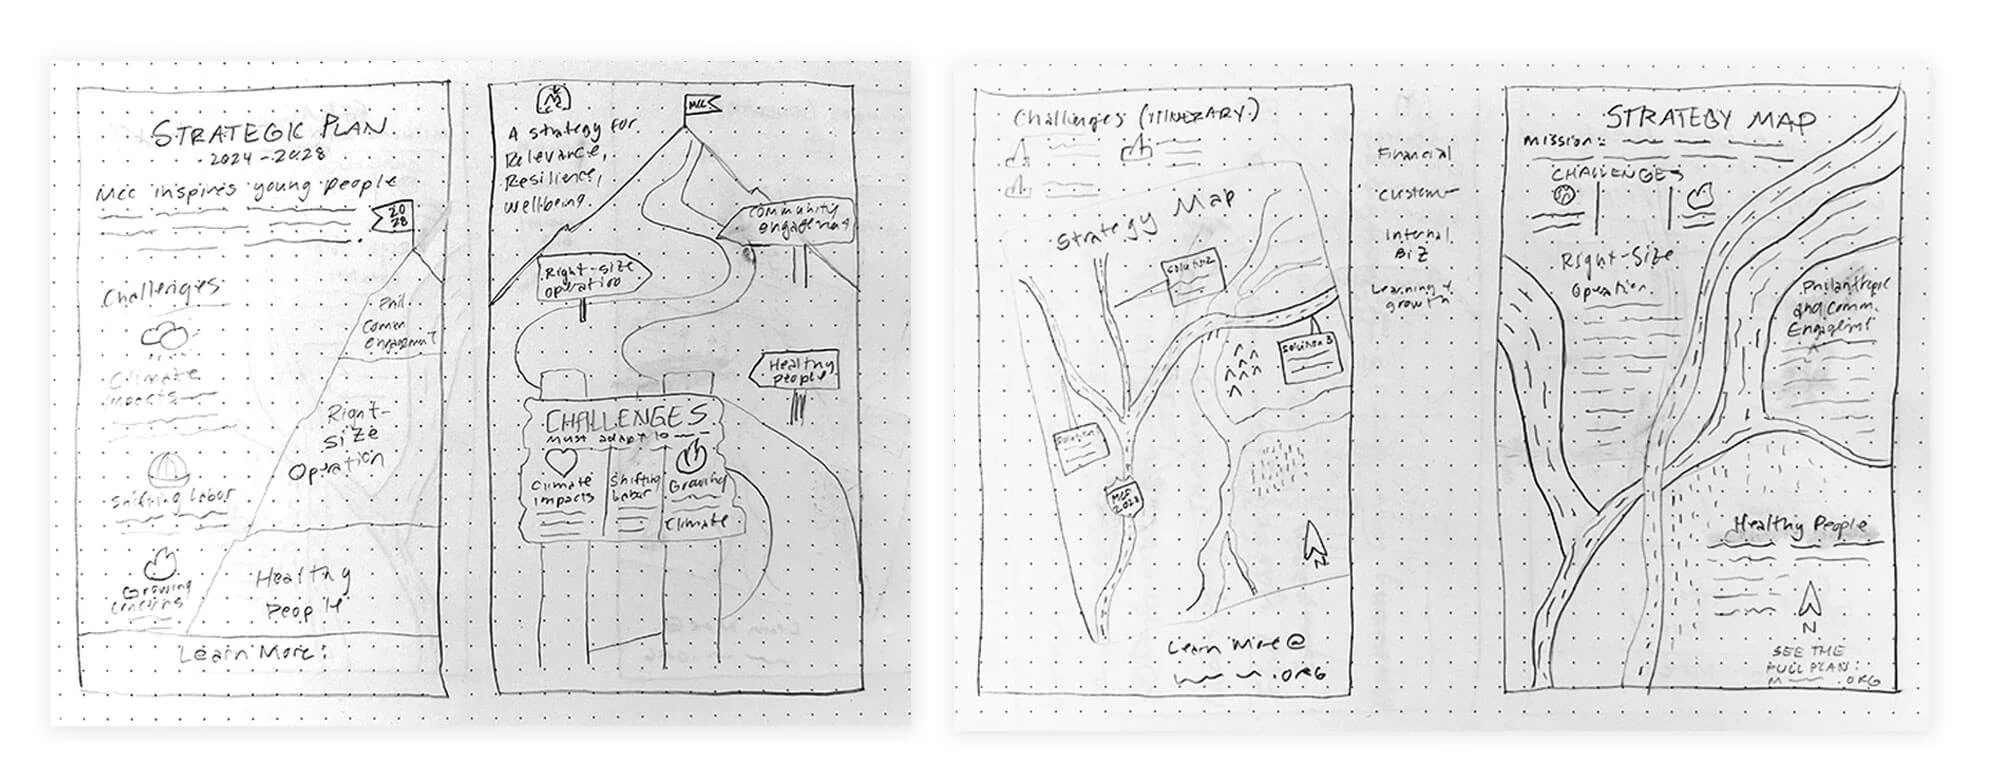 STRATEGIC PLAN
2024-2028
MCC inspires young people
20
28
Challenges
Phil.
Comm
engagement
Climate
impacts
Right-
Size
Operation
Shifting Labor
Growing
Concerns
Healthy
People
Learn More:
MCC
A strategy for
Relevance,
Resilience,
Wellbeing.
MCC
Community
engagement
Right-size
Operation
Healthy
People
CHALLENGES
Must adapt to
Climate
Impacts
Shifting
Labor
Growing
Climate
Challenges (ITINERARY)
Strategy Map
Solution 2
Solution 3
Solution 1
MCC
2028
N
Learn More @
.ORG
Financial
Customer
Internal
Biz
Learning &
growth
STRATEGY MAP
Mission:
CHALLENGES
Right-Size
Operation
Philanthropic
and Comm.
Engagement
Healthy People
N
SEE THE
FULL PLAN:
M .ORG